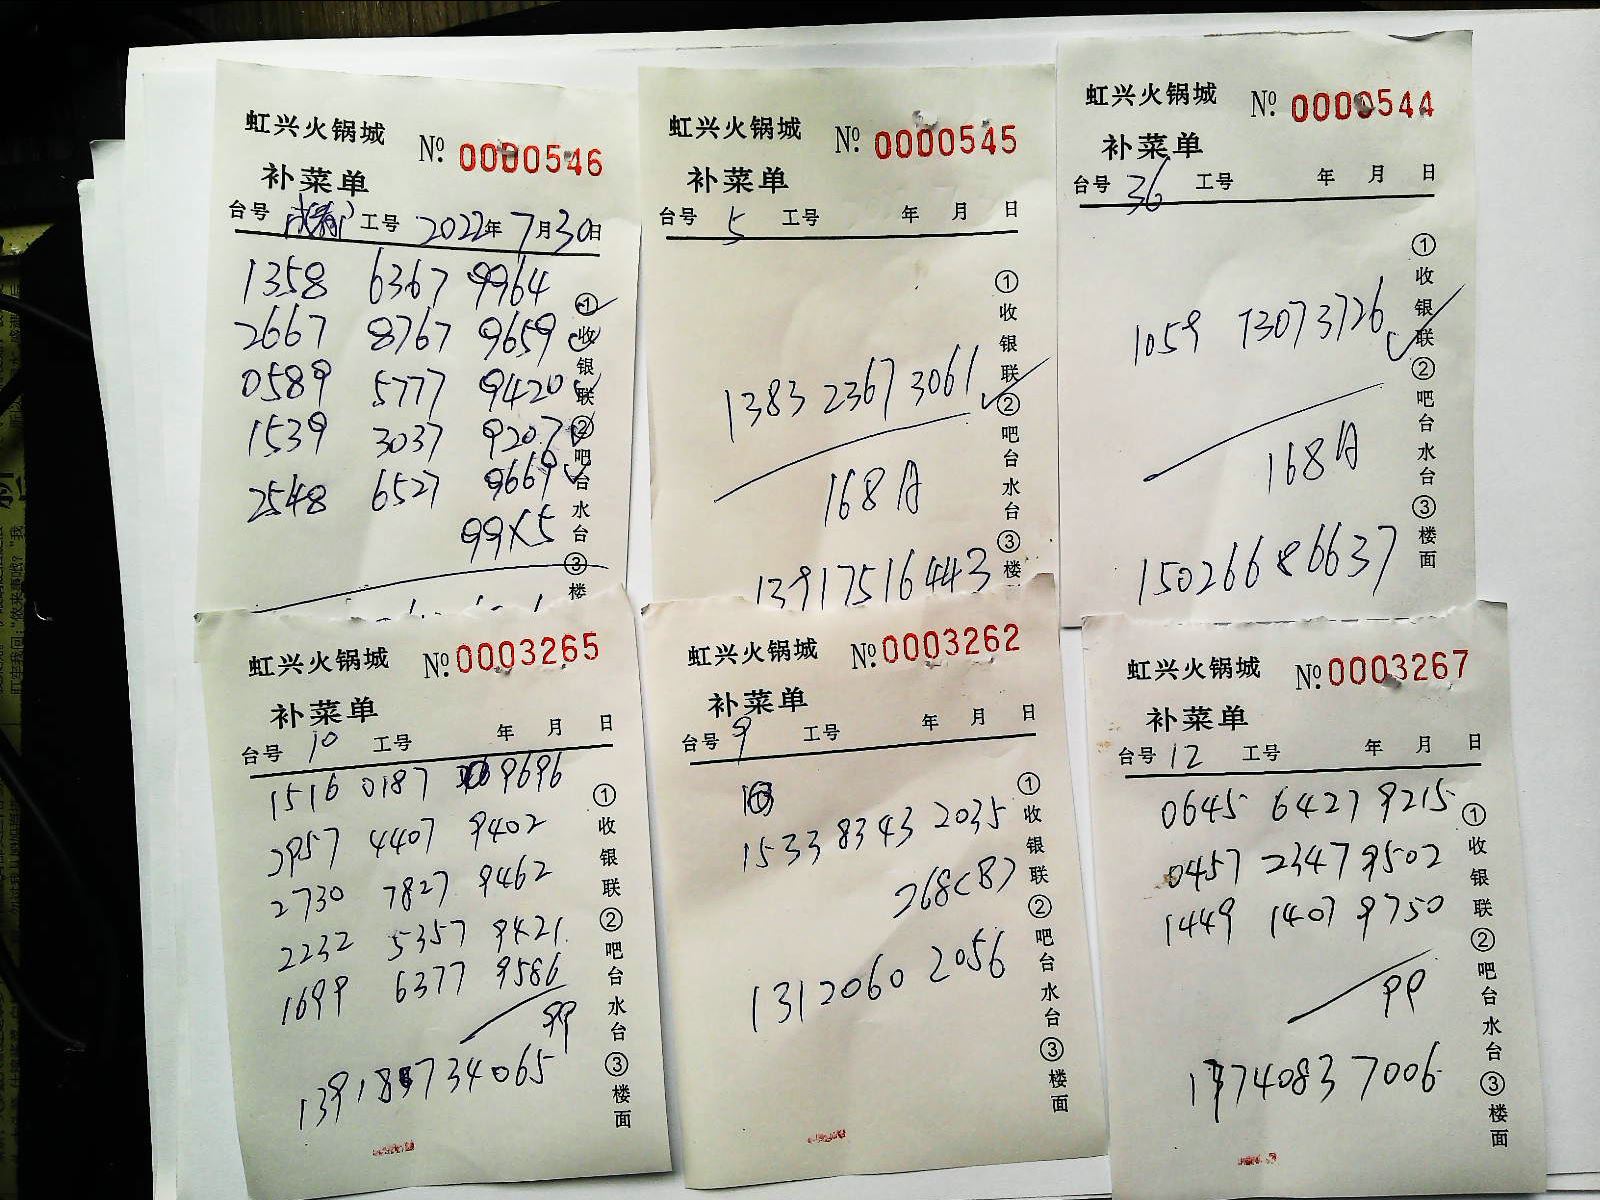 虹兴火锅城 № 0000546
补菜单
台号 成都 工号 2022年7月30日
1358 6367 9964
2667 8767 9659
0589 5777 9420
1539 3037 9207
2548 6527 9669
99×5
①收银联②吧台水台③楼
虹兴火锅城 № 0000545
补菜单
台号 5 工号 年 月 日
1383 2367 3061
168A
13917516443
①收银联②吧台水台③楼
虹兴火锅城 № 0000544
补菜单
台号 36 工号 年 月 日
1059 73073726
168A
15026686637
①收银联②吧台水台③楼面
虹兴火锅城 № 0003265
补菜单
台号 10 工号 年 月 日
1516 0187 9696
2957 4407 9402
2730 7827 9462
2232 5357 9421
1699 6377 9586
99
13918734065
①收银联②吧台水台③楼面
虹兴火锅城 № 0003262
补菜单
台号 9 工号 年 月 日
1533 8343 2035
268<B>
1312060 2056
①收银联②吧台水台③楼面
虹兴火锅城 № 0003267
补菜单
台号 12 工号 年 月 日
0645 6427 9215
0457 2347 9502
1449 1407 9750
99
1774083 7006
①收银联②吧台水台③楼面